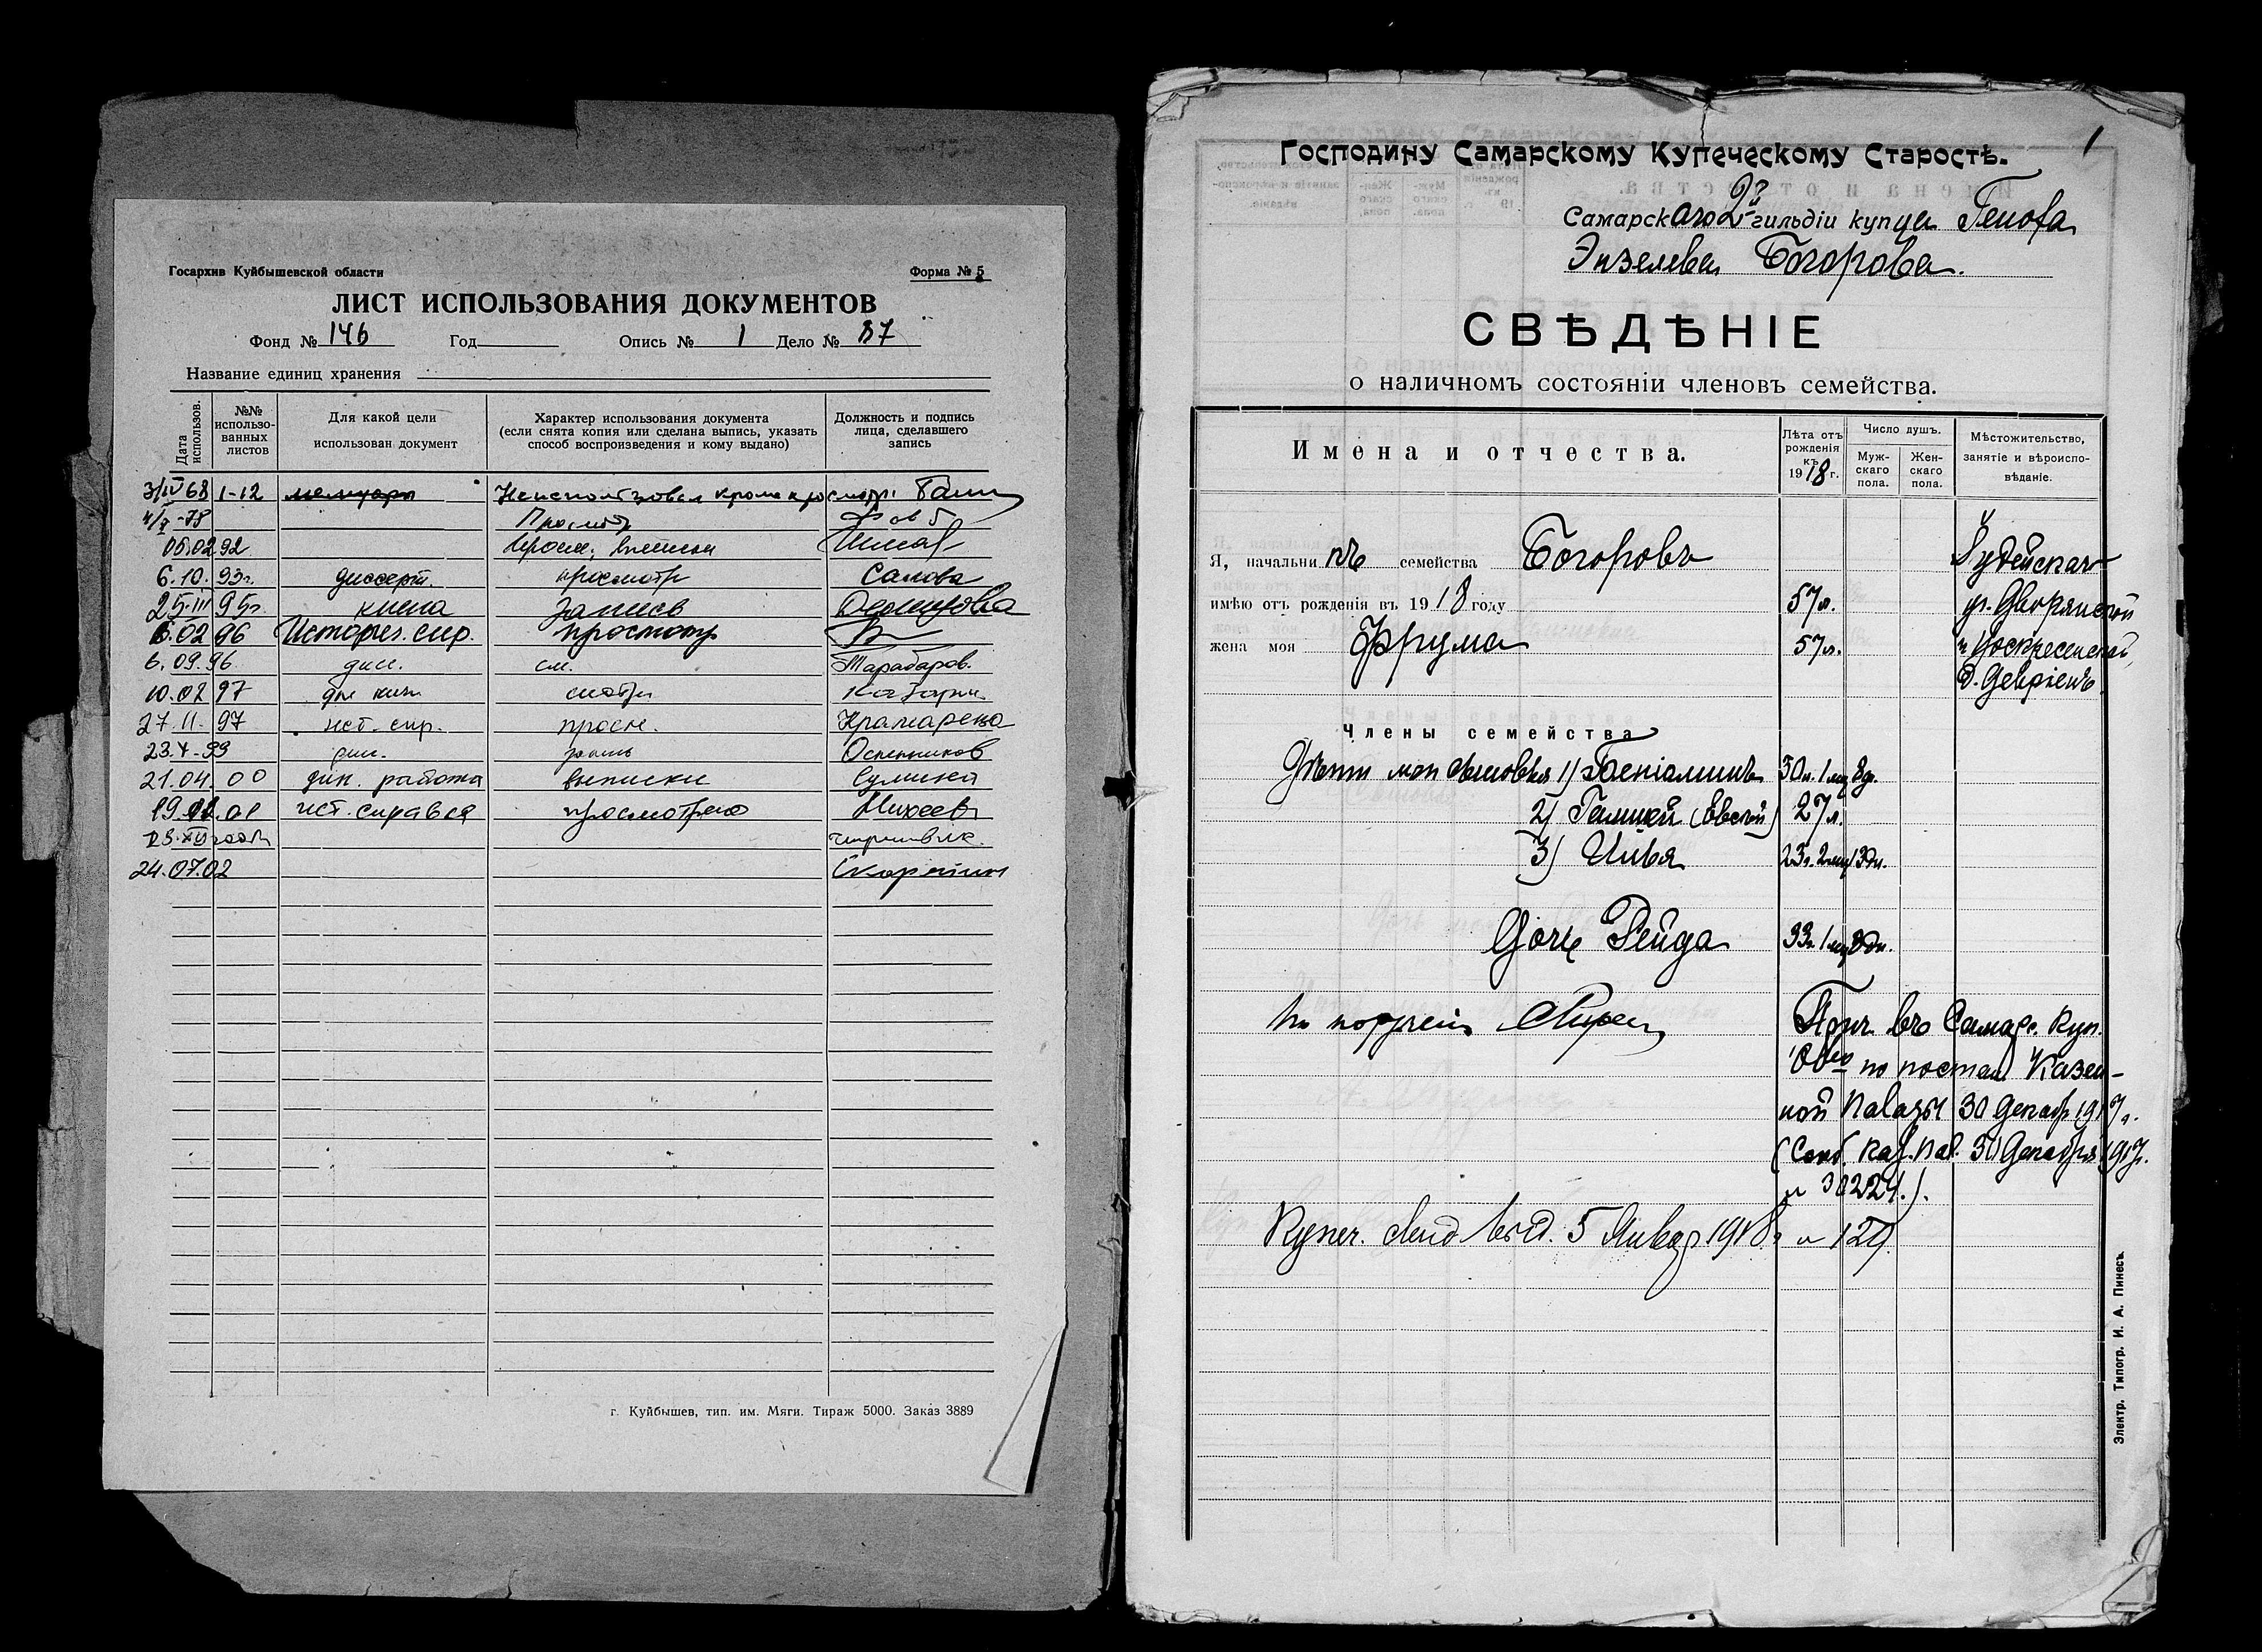 Госархив Куйбышевской области
Форма № 5
ЛИСТ ИСПОЛЬЗОВАНИЯ ДОКУМЕНТОВ
Фонд № 146 Год Опись № 1 Дело № 87
Название единиц хранения
Дата использов.
№№ использо-
ванных
листов
Для какой цели
использован документ
Характер использования документа
(если снята копия или сделана выпись, указать
способ воспроизведения и кому выдано)
Должность и подпись
лица, сделавшего
запись
3/IV 68 1-12 мемуары
05.02 92
6.10. 93г. диссерт. просмотр Салова
25.III 95г. книга запись
6.02 96 Историч. спр. просмотр
6.09.96 дис. см. Тарабаров.
10.02 97
27.11. 97 ист. спр. просм.
23.4.99 дис. Оспенников
21.04.00 дип. работа выписки
19.01.01 ист. справка просмотрено Михеев
24.07.02
г. Куйбышев, тип. им. Мяги. Тираж 5000. Заказ 3889
1
Господину Самарскому Купеческому Старостѣ.
Самарскаго 2й гильдіи купца Генофа
Энзелева Богорова.
СВѢДѢНІЕ
о наличномъ состояніи членовъ семейства.
Имена и отчества.
Лѣта отъ
рожденія
къ
1918 г.
Число душъ.
Муж-
скаго
пола.
Жен-
скаго
пола.
Мѣстожительство,
занятіе и вѣроиспо-
вѣданіе.
Я, начальникъ семейства Богоровъ Іудейская
имѣю отъ рожденія въ 1918 году 57 л. уг. Дворянской
жена моя Фрума 57 л. и Воскресенской,
Члены семейства
Дѣти мои сыновья 1) Веніаминъ 30 л. 1 мѣ 8 д.
2) (Евсей) 27 л.
3) Илья 23 г. 2 мѣ 13 дн.
Дочь Рейда 33 г. 1 мѣ 8 дн.
Прич. въ Самарс. куп.
Об-во по постан. Казен-
ной палаты 30 Декабр 1917 г.
(Сооб. Каз. Пал. 30 Декабря 1917г.
Купеч. свид. выд. 5 Январ 1918 г. № 129
Электр. Типогр. И. А. Пинесъ.